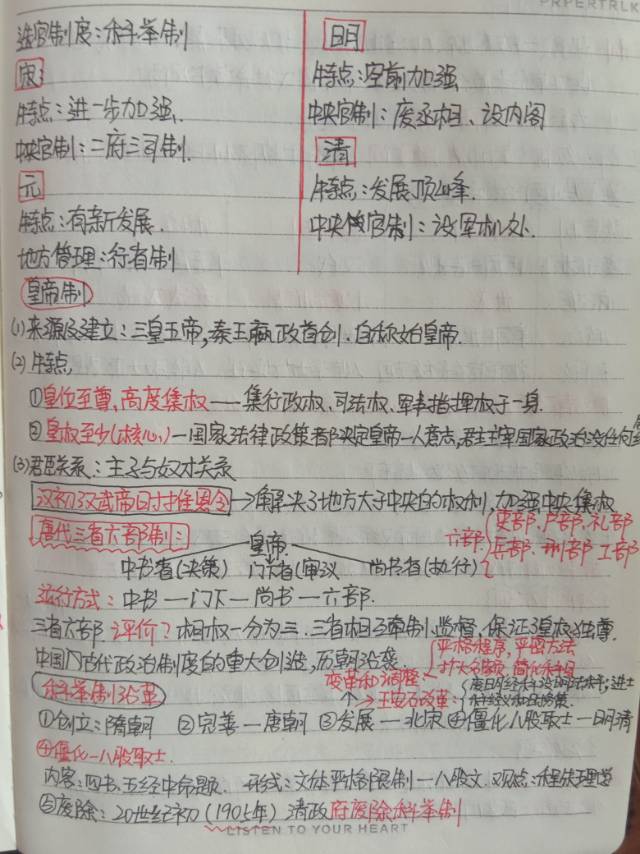 PAPERTALK
选官制度:科举制
宋:
特点:进一步加强.
中央官制:二府三司制.
元
特点:有新发展.
地方管理:行省制
明
特点:空前加强
中央官制:废丞相、设内阁
清
特点:发展顶峰.
中央官制:设军机处.
皇帝制
(1)来源及建立:三皇五帝,秦王嬴政首创.自称始皇帝.
(2)特点,
①皇位至尊,高度集权——集行政权、司法权、军事指挥权于一身.
②皇权至少(核心)—国家法律政策都决定皇帝一人意志,君主主宰国家政治没任何
(3)君臣关系:主子与奴才关系
汉初汉武帝时推恩令→解决了地方大于中央的权利,加强中央集权
唐代三省六部制:
皇帝.
六部 吏部、户部、礼部
兵部、刑部 工部
中书省(决策) 门下省(审议 尚书省(执行)
运行方式:中书—门下—尚书—六部.
三省六部 评价?相权一分为三.三省相互牵制、监督,保证皇权独尊.
中国古代政治制度的重大创造,历朝沿袭.
变革和调整
严格程序,严密方法
扩大名额,简化科目
科举制沿革
→王安石改革:
①创立:隋朝 ②完善—唐朝 ③发展—北宋 ④僵化八股取士—明清
④僵化—八股取士.
内容:四书、五经中命题. 形式:文体严格限制—八股文.观点:程朱理学
⑤废除:20世纪初(1905年)清政府废除科举制
LISTEN TO YOUR HEART